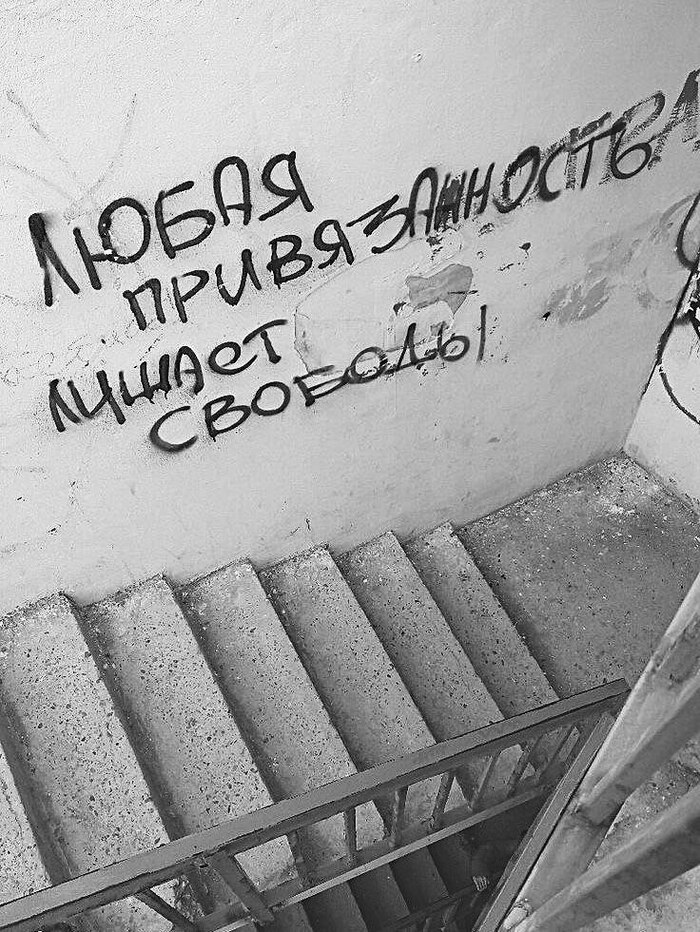 ЛЮБАЯ
ПРИВЯЗАННОСТЬ
ЛИШАЕТ
СВОБОДЫ